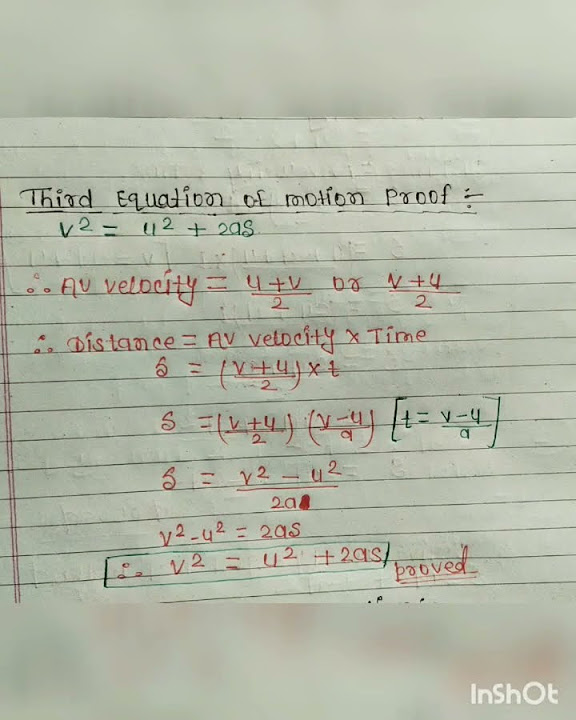 Third Equation of motion Proof :-
v² = u² + 2as
∴ Av velocity = u+v/2 or v+u/2
∴ Distance = Av velocity × Time
s = (v+u/2) × t
s = (v+u/2) (v-u/a) [t = v-u/a]
s = v² - u²/2a
v² - u² = 2as
∴ v² = u² + 2as proved
InShOt